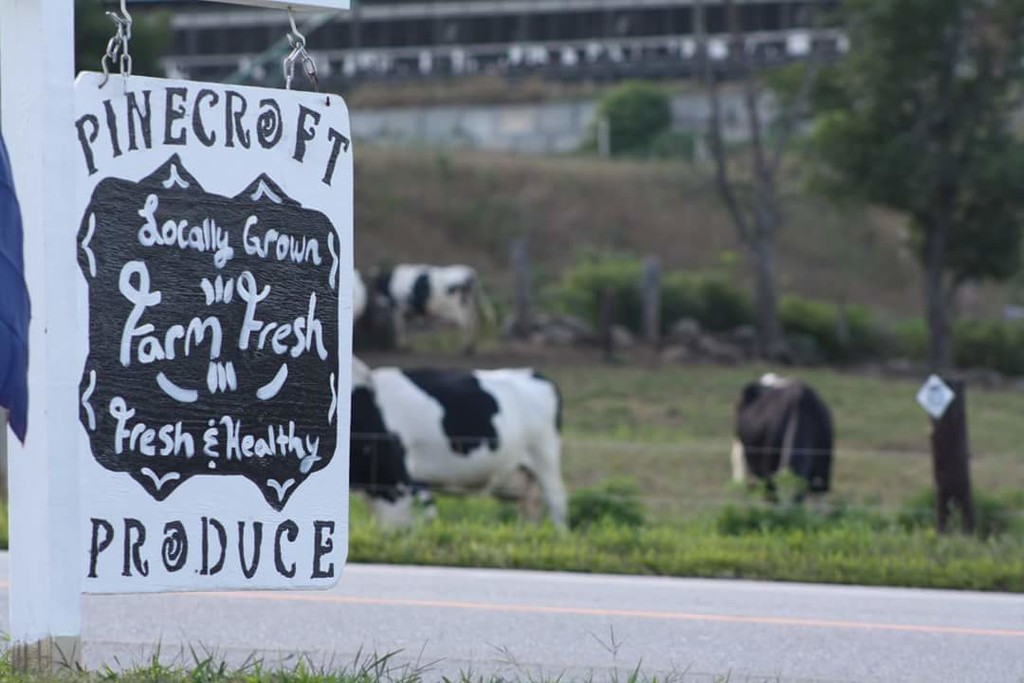 PINECROFT
Locally Grown
Farm Fresh
Fresh & Healthy
PRODUCE